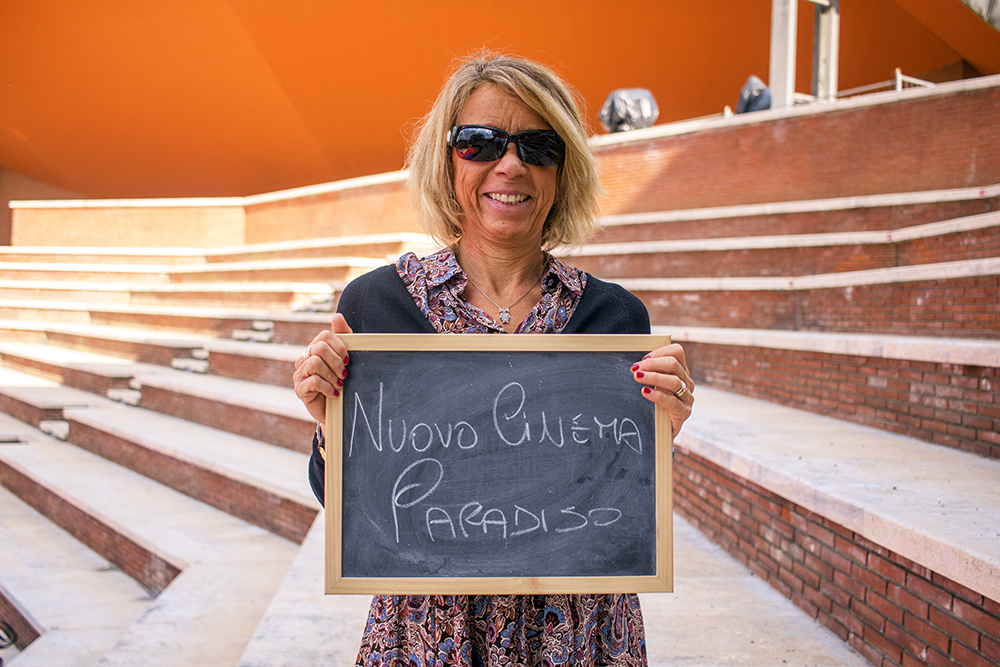 Nuovo Cinéma
Paradiso